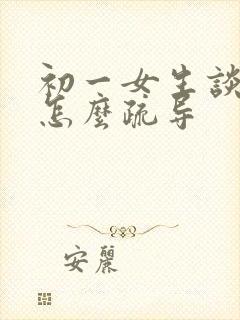 初一女生談
怎麼疏导
安麗